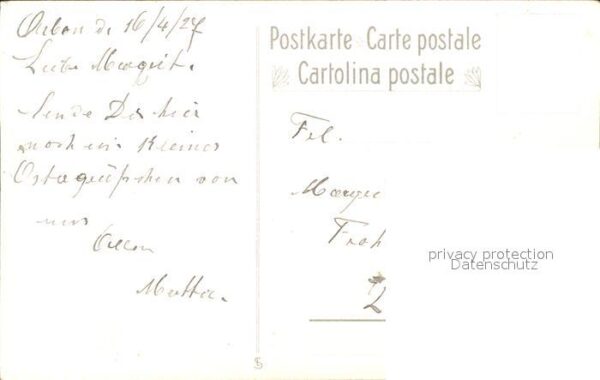 Arbon d. 16/4/27
Liebe Margrit.
Sende Dir hier
noch ein kleines
Ostergrüsschen von
uns
Allen
Mutter.
Postkarte Carte postale
Cartolina postale
Frl.
Margr
Froh
privacy protection
Datenschutz